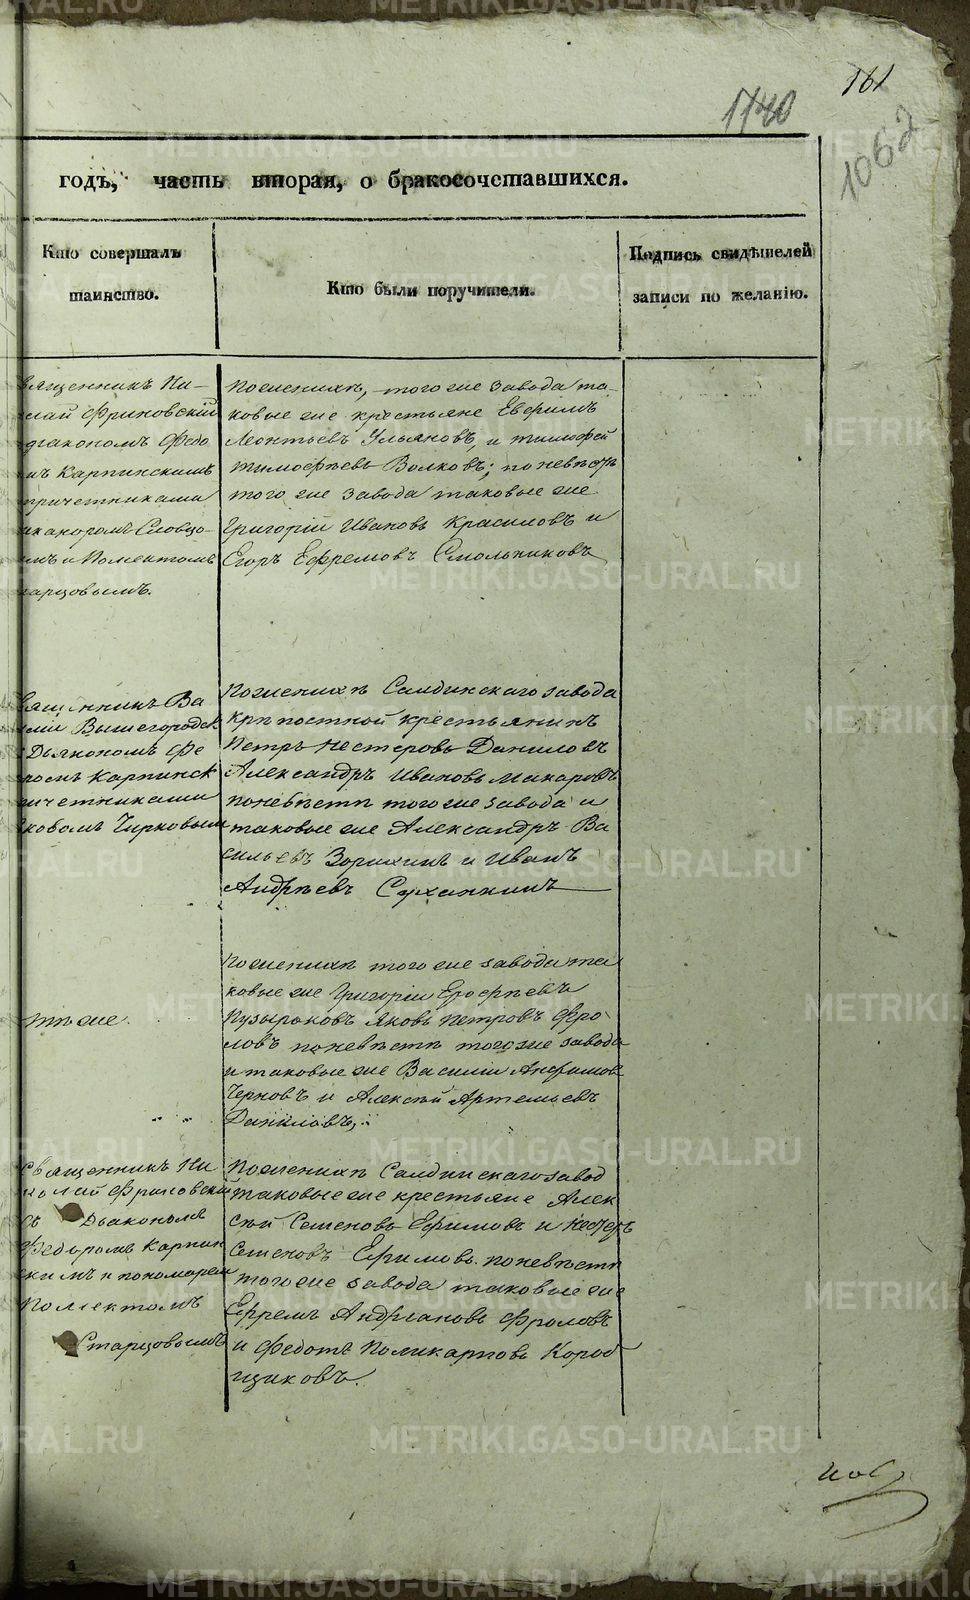 161
1740
1062
годъ, часть вторая, о бракосочетавшихся.
Кто совершалъ
таинство.
Кто были поручители.
Подпись свидѣтелей
записи по желанію.
вященникъ Ни-
лай Фриновскій
діакономъ Федо
мъ Карпинскимъ
причетниками
иканоромъ Словцо-
мъ и Полиектомъ
тарцовымъ.
По женихѣ, того же завода та-
ковые же крестьяне Евфимъ
Леонтьевъ Ульяновъ, и тимофей
тимофѣевъ Волковъ; по невѣстѣ
того же завода таковые же
Григорій Ивановъ Красиловъ и
Егоръ Ефремовъ Смольниковъ
вященникъ Ва
илій Вышегородск
Дьякономъ Фе
ромъ Карпинск
ичетниками
ковомъ Чирковым
По женихѣ Салдинскаго завода
крѣпостной крестьянинъ
Петръ Нестеровъ Даниловъ
Александръ Ивановъ Макаровъ
по невѣстѣ того же завода и
таковые же Александръ Ва
сильевъ Зорихинъ и Иванъ
Андрѣевъ
тѣ же
По женихѣ того же завода та
ковые же Григорій Ерофѣевъ
Пузыраковъ Яковъ Петровъ Фро-
ловъ по невѣстѣ того же завода
и таковые же Василій Анфимов
Черновъ и Алексѣй Артемьевъ
Даниловъ,
Священникъ Ни
колай Фриновскій
съ Дьякономъ
Федоромъ Карпин
скимъ и пономаремъ
Полиектомъ
Старцовымъ
По женихѣ Салдинскаго завод
таковые же крестьяне Алек
сѣй Семеновъ Ефимовъ и Нефедъ
Семеновъ Ефимовъ. по невѣстѣ
того же завода таковые же
Ефремъ Андріановъ Фроловъ
и Федотъ Поликарповъ Короб
щиковъ.